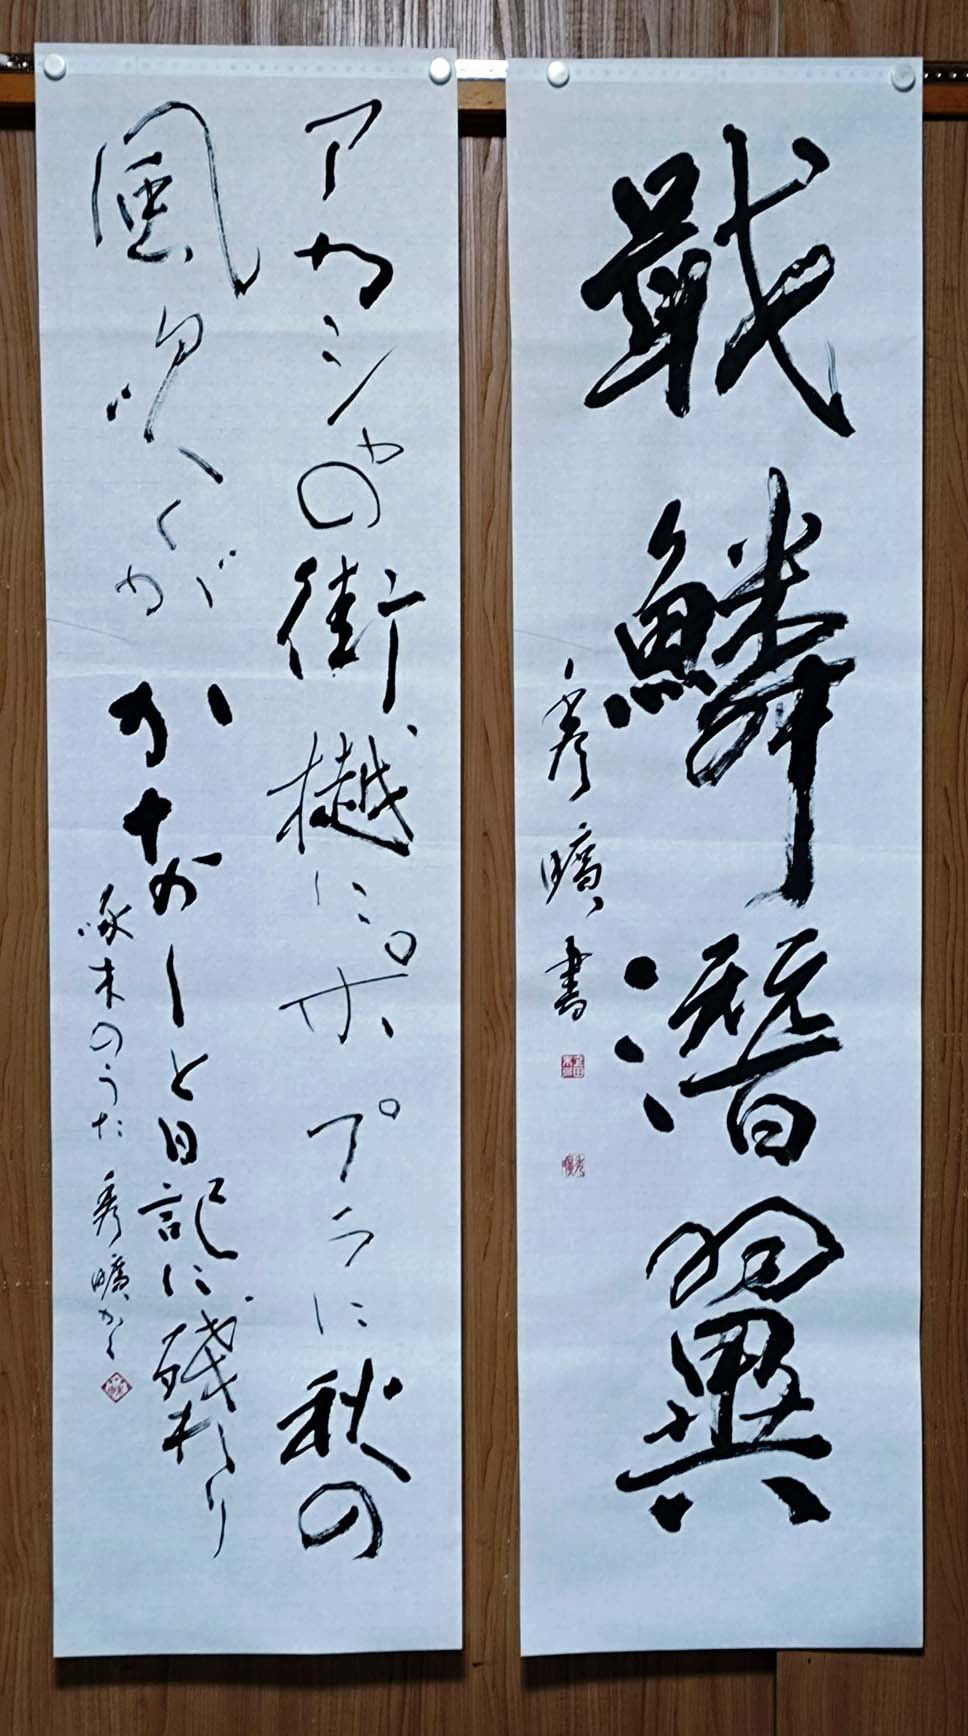 戢鱗潛翼
秀曠書
アカシヤの街樾にポプラに秋の
風吹くがかなしと日記に残れり
啄木のうた 秀曠かく